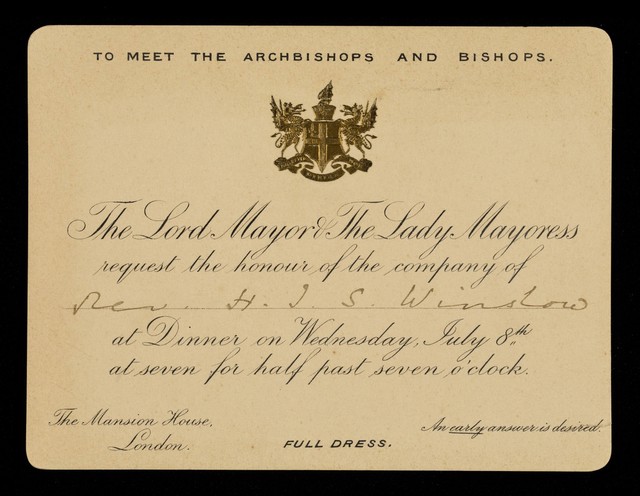 TO MEET THE ARCHBISHOPS AND BISHOPS.
The Lord Mayor & The Lady Mayoress
request the honour of the company of
Rev. H. J. S. Winslow
at Dinner on Wednesday, July 8th
at seven for half past seven o'clock.
The Mansion House,
London.
FULL DRESS.
An early answer is desired.